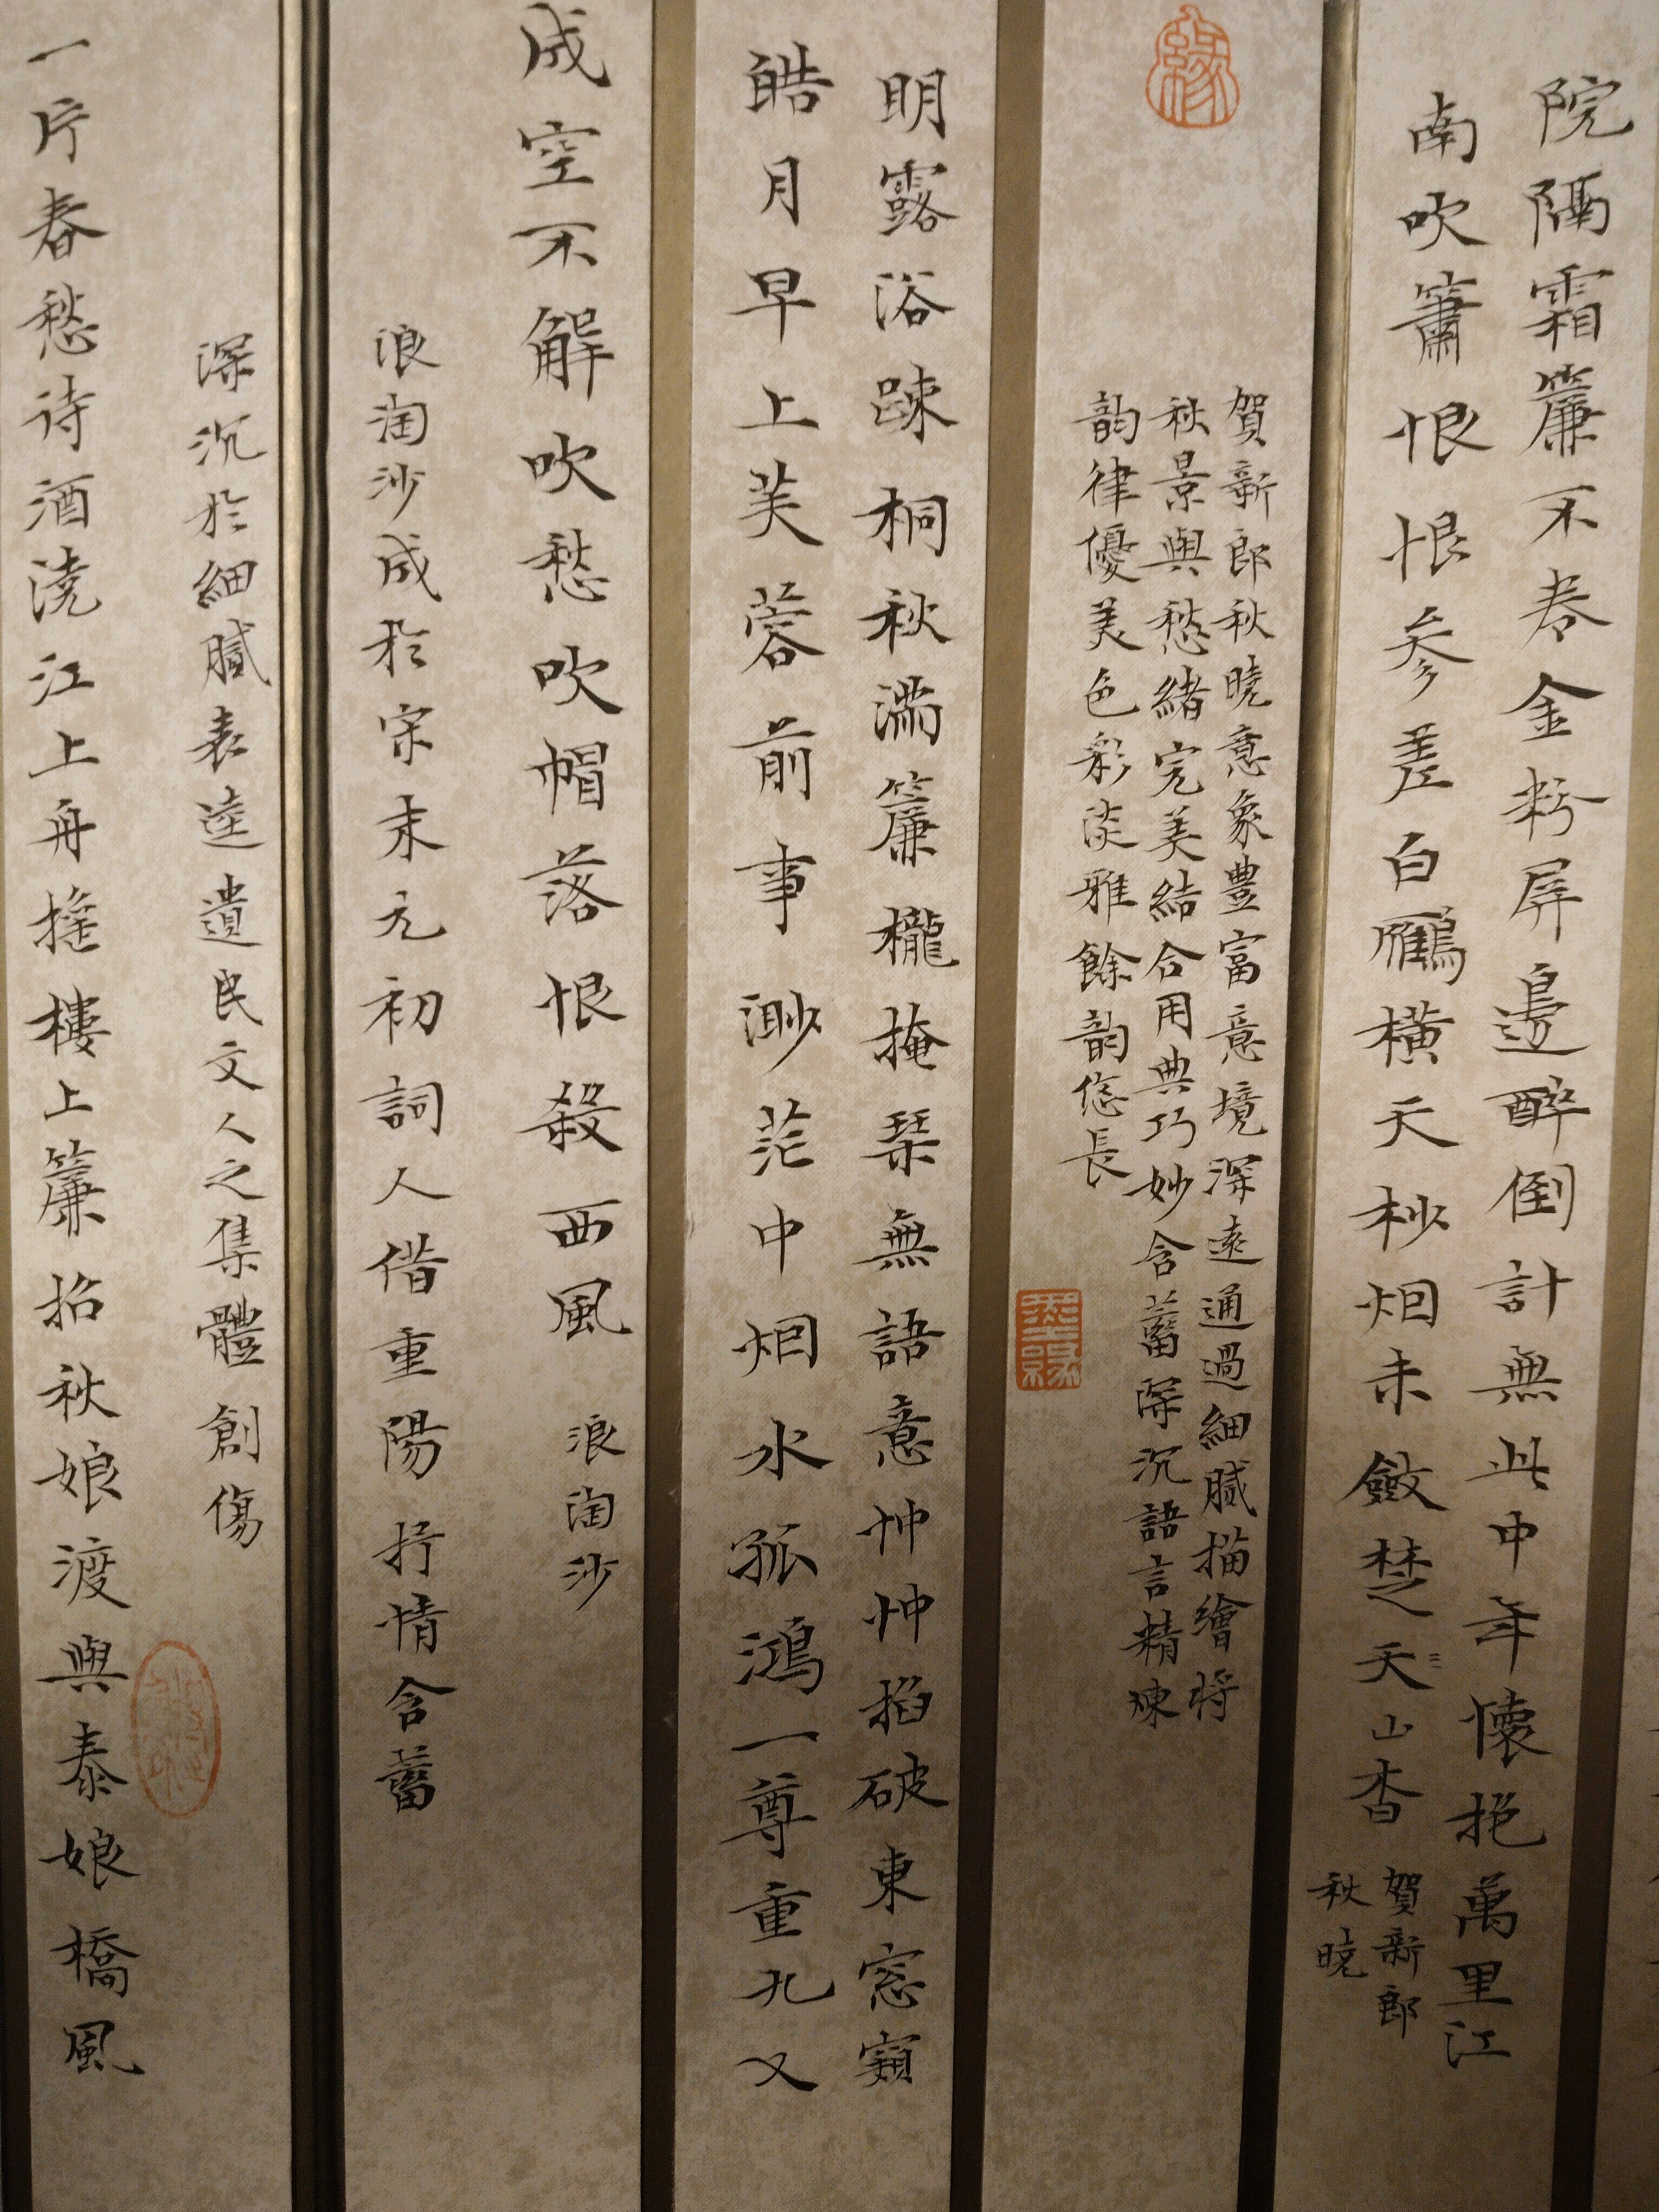 院隔霜簾不卷金粉屏邊醉倒計無此中年懷抱萬里江
南吹簫恨恨參差白鴈橫天杪烟未斂楚天山杳
賀新郎
秋曉
緣
賀新郎秋曉意象豊富意境深遠通過細膩描繪將
秋景與愁緒完美結合用典巧妙含蓄深沉語言精煉
韵律優美色彩淡雅餘韵悠長
墨緣
明露浴疎桐秋濡簾櫳掩琹無語意忡忡掐破東窓窺
皓月早上芙蓉前事渺茫中烟水孤鴻一尊重九又
成空不解吹愁吹帽落恨殺西風
浪淘沙
浪淘沙成於宋末元初詞人借重陽抒情含蓄
深沉於細膩表達遺民文人之集體創傷
一片春愁待酒澆江上舟搖樓上簾招秋娘渡與泰娘橋風